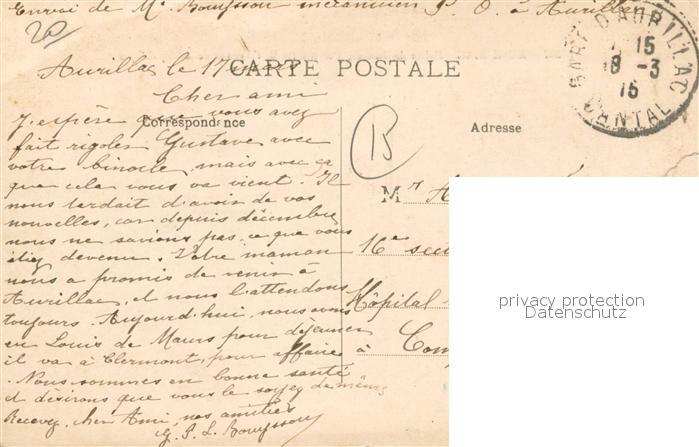 Envoi de Mr Bouysson mécanicien P. O. à Aurillac
20
Aurillac le 17
CARTE POSTALE
GARE D'AURILLAC
15
18 -3
15
CANTAL
Cher ami
Correspondance
Adresse
B
J'espère que vous avez
fait rigoler Gustave avec
votre binocle, mais avec ça
que cela vous va vient. Il
nous tardait d'avoir de vos
nouvelles, car depuis décembre
nous ne savions pas ce que vous
étiez devenu. Votre maman
nous a promis de venir à
Aurillac, et nous l'attendons
toujours. Aujourd'hui, nous avons
eu Louis de Maurs pour déjeuner
il va à Clermont, pour affaire
. Nous sommes en bonne santé
et désirons que vous le soyez de même
Recevez, cher Ami, nos amitiés
G. P. L. Bouysson
Mr
16e
Hôpital
à
privacy protection
Datenschutz